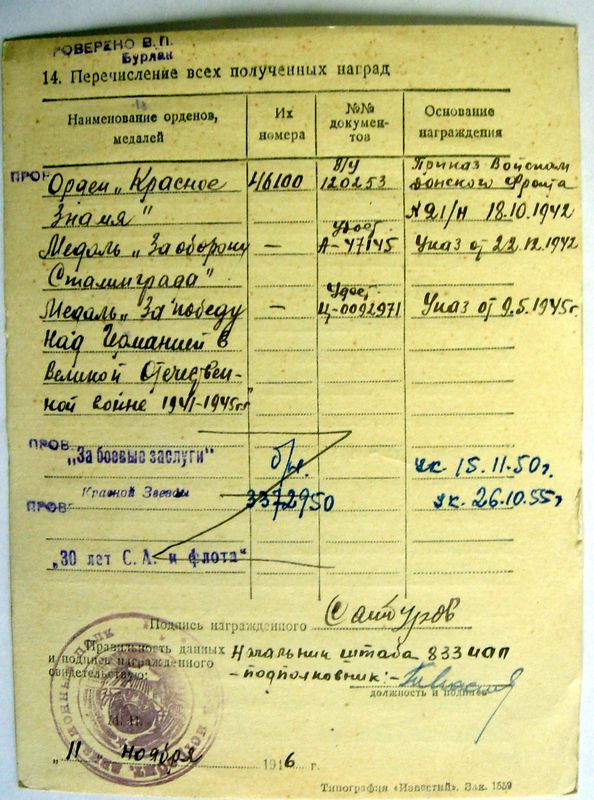 ПРОВЕРЕНО В. П.
Бурлак
14. Перечисление всех полученных наград
Наименование орденов, медалей
Их номера
№№ документов
Основание награждения
ПРОВ
Орден „Красное 46100 В/У 120253 Приказ Войскам Донского Фронта
Знамя" №21/н 18.10.1942
Медаль „За оборону — Удост. А-47145 Указ от 22.12.1942
Сталинграда"
Медаль „За победу — Удост. Ц-0092971 Указ от 9.5.1945г.
над Германией в
Великой Отечествен-
ной войне 1941-1945гг"
ПРОВ.
„За боевые заслуги" б/н. ук. 15.11.50г.
Красной Звезды 3372950 ук. 26.10.55г
ПРОВ
„30 лет С. А. и флота"
Подпись награжденного Сайтуров
Правильность данных Начальник штаба 833 иап
и подпись награжденного
свидетельствую: -подполковник:-
должность и подпись
М. П.
„11 ноября 1946 г.
Типография «Известий». Зак. 1559